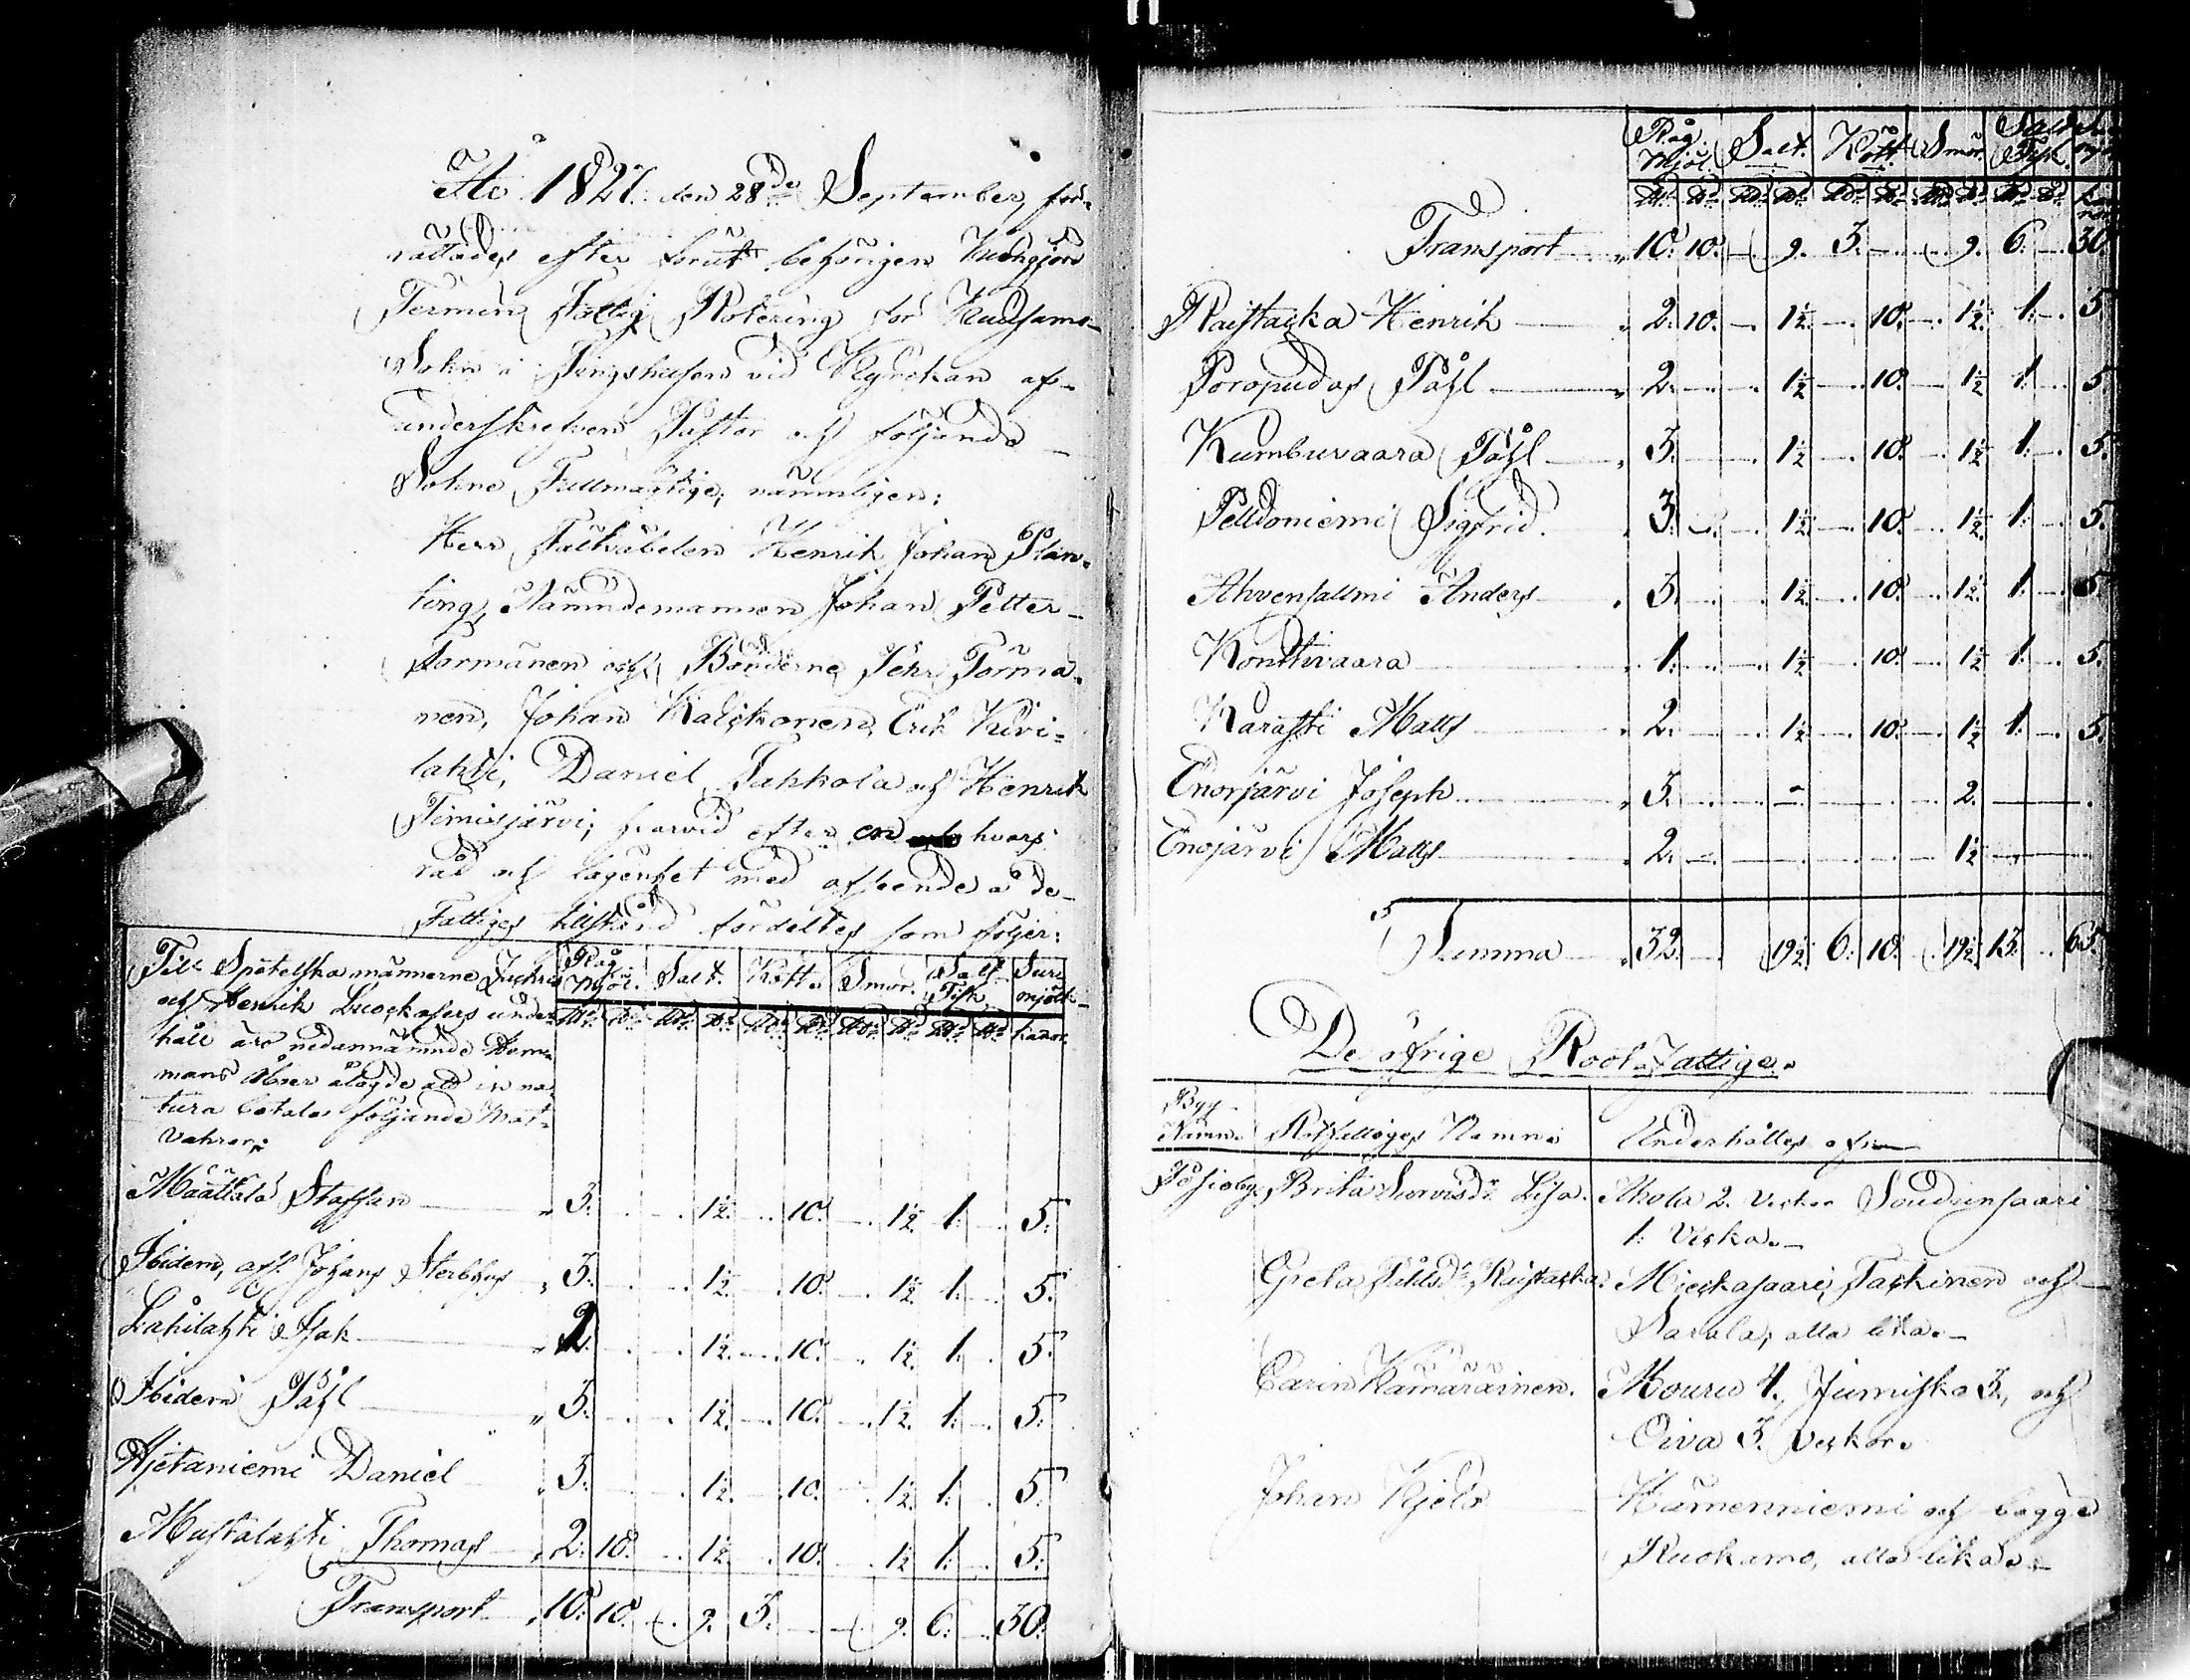 År 1827. den 28de September, för-
rättades efter förut behörigen kundgjord
Termin Fattig Rotering för Kuusamo
Sokn i Tingshusen vid Kyrckan af
underskrefven Pastor och följande
Sokne Fullmägtige, nämnligen:
Herr Henrik Johan Plan-
ting, Nämndemannen Johan Petter
Törmänen och Bönderne Pehr Törmä-
nen, Johan Kalckonen, Erik Kivi-
lahti, Daniel Takkola och Henrik
Timisjärvi; efter en hvars
råd och lägenhet med afseende å de
Fattiges tillstånd fördeltes som följer:
Till Spetelska männerne Zachris
och Henrik under-
håll äro nedannämnde Hem-
mans Åboer ålagde att in na-
tura betala följande Mat-
vahror:
Råg Mjöl. Salt. Kött. Smör. Salt Fisk Sur mjölk
Ld. ℔. Ld. ℔. Ld. ℔. Ld. ℔. Ld. ℔. kanor.
Määttälä Staffan „ 3. 1½. 10. 1½ 1. 5.
Ibidem, afl. Johans Sterbhus „ 3. 1½ 10. 1½ 1. 5.
Lahilahti Isak „ 2. 1½. 10. 1½ 1. 5.
Ibidem Påhl „ 3. 1½. 10. 1½. 1. 5.
Hjetaniemi Daniel „ 3. 1½. 10. 1½. 1. 5.
Mustalahti Thomas „ 2. 10. 1½. 10. 1½ 1. 5.
Transport „ 16. 10. 9. 3. 9. 6. 30.
Råg Mjöl. Salt. Kött. Smör. Salt Fisk.
Ld. ℔. Ld. ℔. Ld. ℔. Ld. ℔. Ld. ℔.
Transport „ 16. 10. 9. 3. 9. 6. 30.
Raistacka Henrik „ 2. 10. 1½. 10. 1½. 1. 5.
Poropudas Påhl „ 2. 1½ 10. 1½ 1. 5
Kumbuvaara Påhl „ 3. 1½ 10. 1½ 1. 5.
Peldoniemi Sigfrid. „ 3. 1½. 10. 1½. 1. 5.
Ahvensallmi Anders „ 3. 1½. 10. 1½. 1. 5.
Konttivaara „ 1. 1½ 10. 1½ 1. 5.
Karasti Matts „ 2. 1½ 10. 1½ 1. 5.
Enojärvi Joseph „ 3. 2.
Enojärvi Matts „ 2. 1½
Summa „ 32. 19½. 6. 10. 19½. 13. 65.
De öfrige Root-Fattige.
Byg Namn. Rotfattiges Namn Underhålles af
Posioby. Brita Lisa. Ahola 2. Veckor Soudunsaari
1. Vecka.
Greta Riistacka. Mieckasaari, Tackinen och
Savala, alla lika.
Carin Kämäräinen. Mouru 4., Jumisko 3., och
Oiva 3. Veckor.
Johan Kjelo Hämenniemi och bägge
Ruokamo, alla lika.